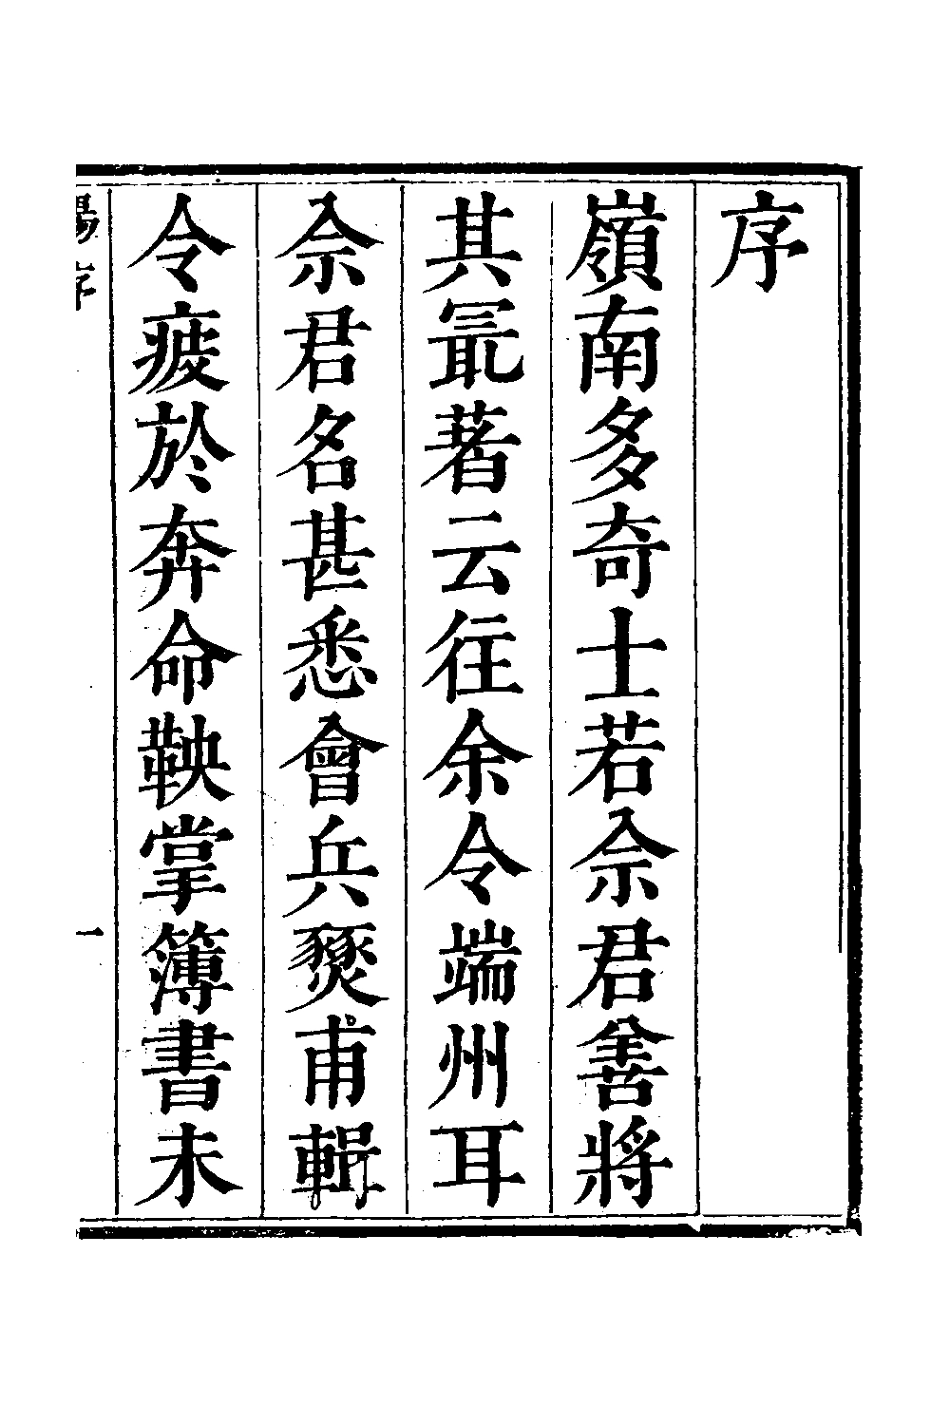 序
嶺南多奇士若佘君善將
其冣著云往余令端州耳
佘君名甚悉會兵燹甫輯
令疲於奔命鞅掌簿書未
陽序
一